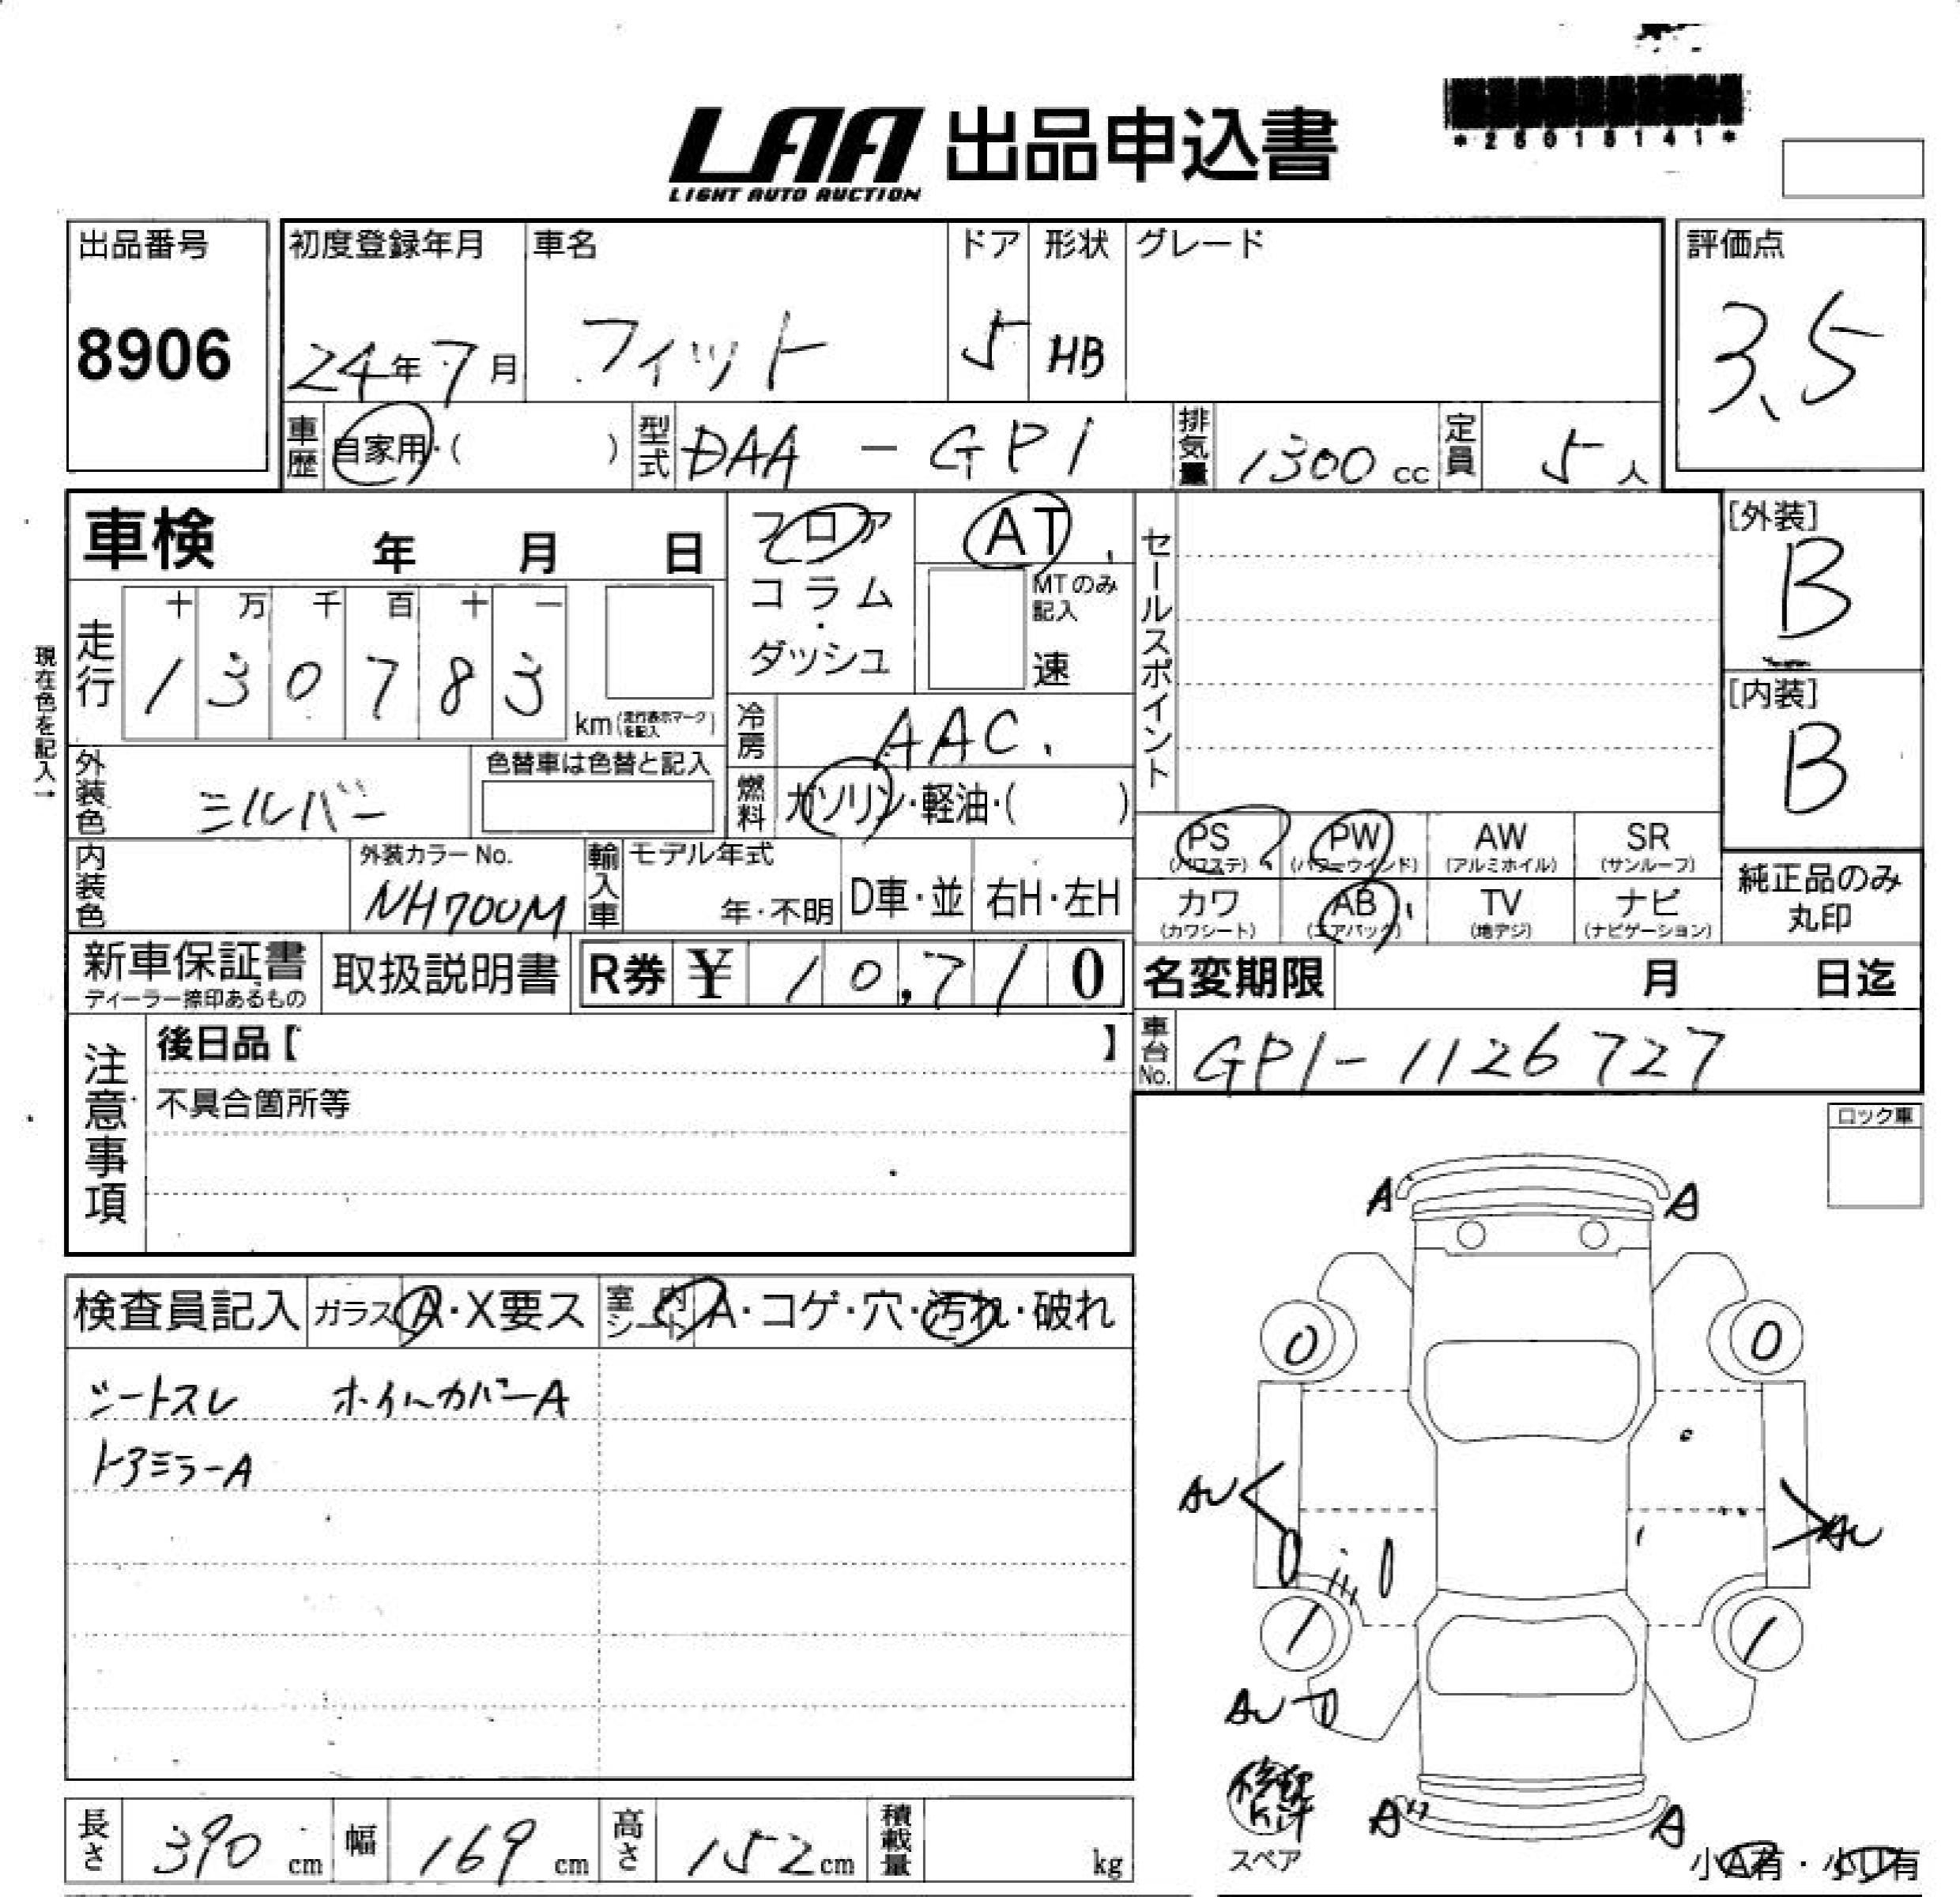 *25015141*
LAA 出品申込書
LIGHT AUTO AUCTION
出品番号 初度登録年月 車名 ドア 形状 グレード 評価点
8906 24年7月 フィット 5 HB 3.5
車歴 自家用・( ) 型式 DAA - GP1 排気量 1300cc 定員 5人
車検 年 月 日 フロア AT セールスポイント [外装]
コラム・ダッシュ MTのみ記入 速 B
走行 十 万 千 百 十 一
1 3 0 7 8 3 km (走行表示マークを記入)
[内装]
B
現在色を記入→
冷房 AAC
外装色 シルバー 色替車は色替と記入 燃料 ガソリン・軽油・( )
PS PW AW SR
(パワステ) (パワーウインド) (アルミホイル) (サンルーフ)
カワ AB TV ナビ
(カワシート) (エアバック) (地デジ) (ナビゲーション)
純正品のみ
丸印
内装色 外装カラーNo. NH700M 輸入車 モデル年式 年・不明 D車・並 右H・左H
新車保証書 取扱説明書 R券 ¥ 10,710 名変期限 月 日迄
ディーラー捺印あるもの
車台No. GP1-1126727
注意事項 後日品【 】
不具合箇所等
ロック車
A A
検査員記入 ガラス A・X要ス 室内 シート A・コゲ・穴・汚れ・破れ
0 0
シートスレ ホイールカバーA
ドアミラーA
AU AU
1 1
AU
A A
スペア
小A有・小U有
長さ 390cm 幅 169cm 高さ 152cm 積載量 kg